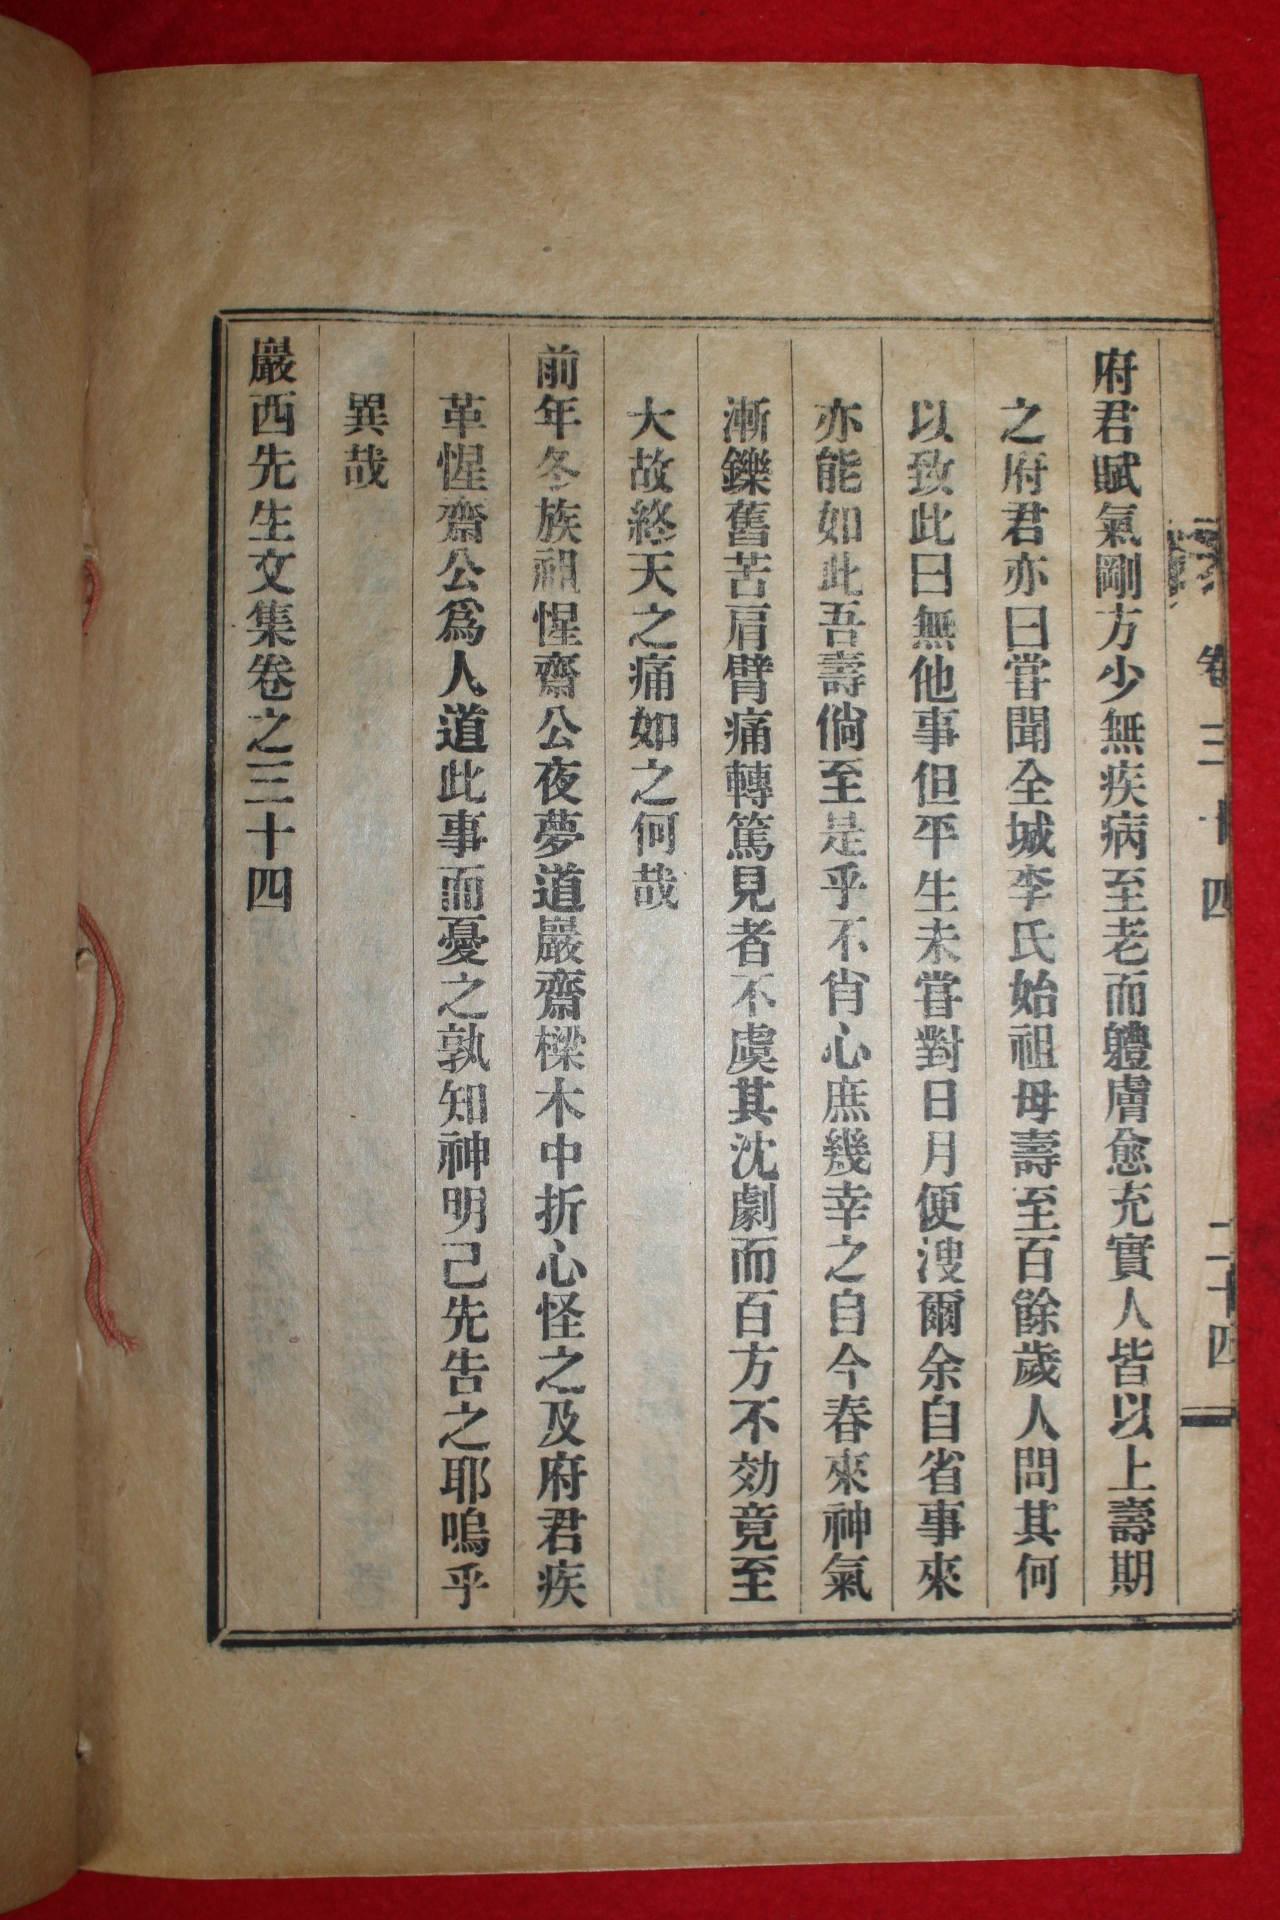 卷三十四
二十四
府君賦氣剛方少無疾病至老而軆膚愈充實人皆以上壽期
之府君亦曰甞聞全城李氏始祖母壽至百餘歲人問其何
以致此曰無他事但平生未甞對日月便溲爾余自省事來
亦能如此吾壽倘至是乎不肖心庶幾幸之自今春來神氣
漸鑠舊苦肩臂痛轉篤見者不虞其沈劇而百方不効竟至
大故終天之痛如之何哉
前年冬族祖惺齋公夜夢道巖齋樑木中折心怪之及府君疾
革惺齋公爲人道此事而憂之孰知神明已先告之耶嗚乎
異哉
巖西先生文集卷之三十四